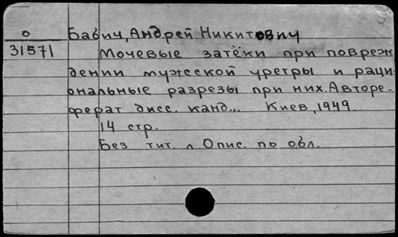 о
31571
Бабич, Андрей Никитович
Мочевые затёки при повреж
дении мужской уретры и раци
ональные разрезы при них. Авторе-
ферат дисс. канд... Киев, 1949.
14 стр.
Без тит. л Опис. по обл.